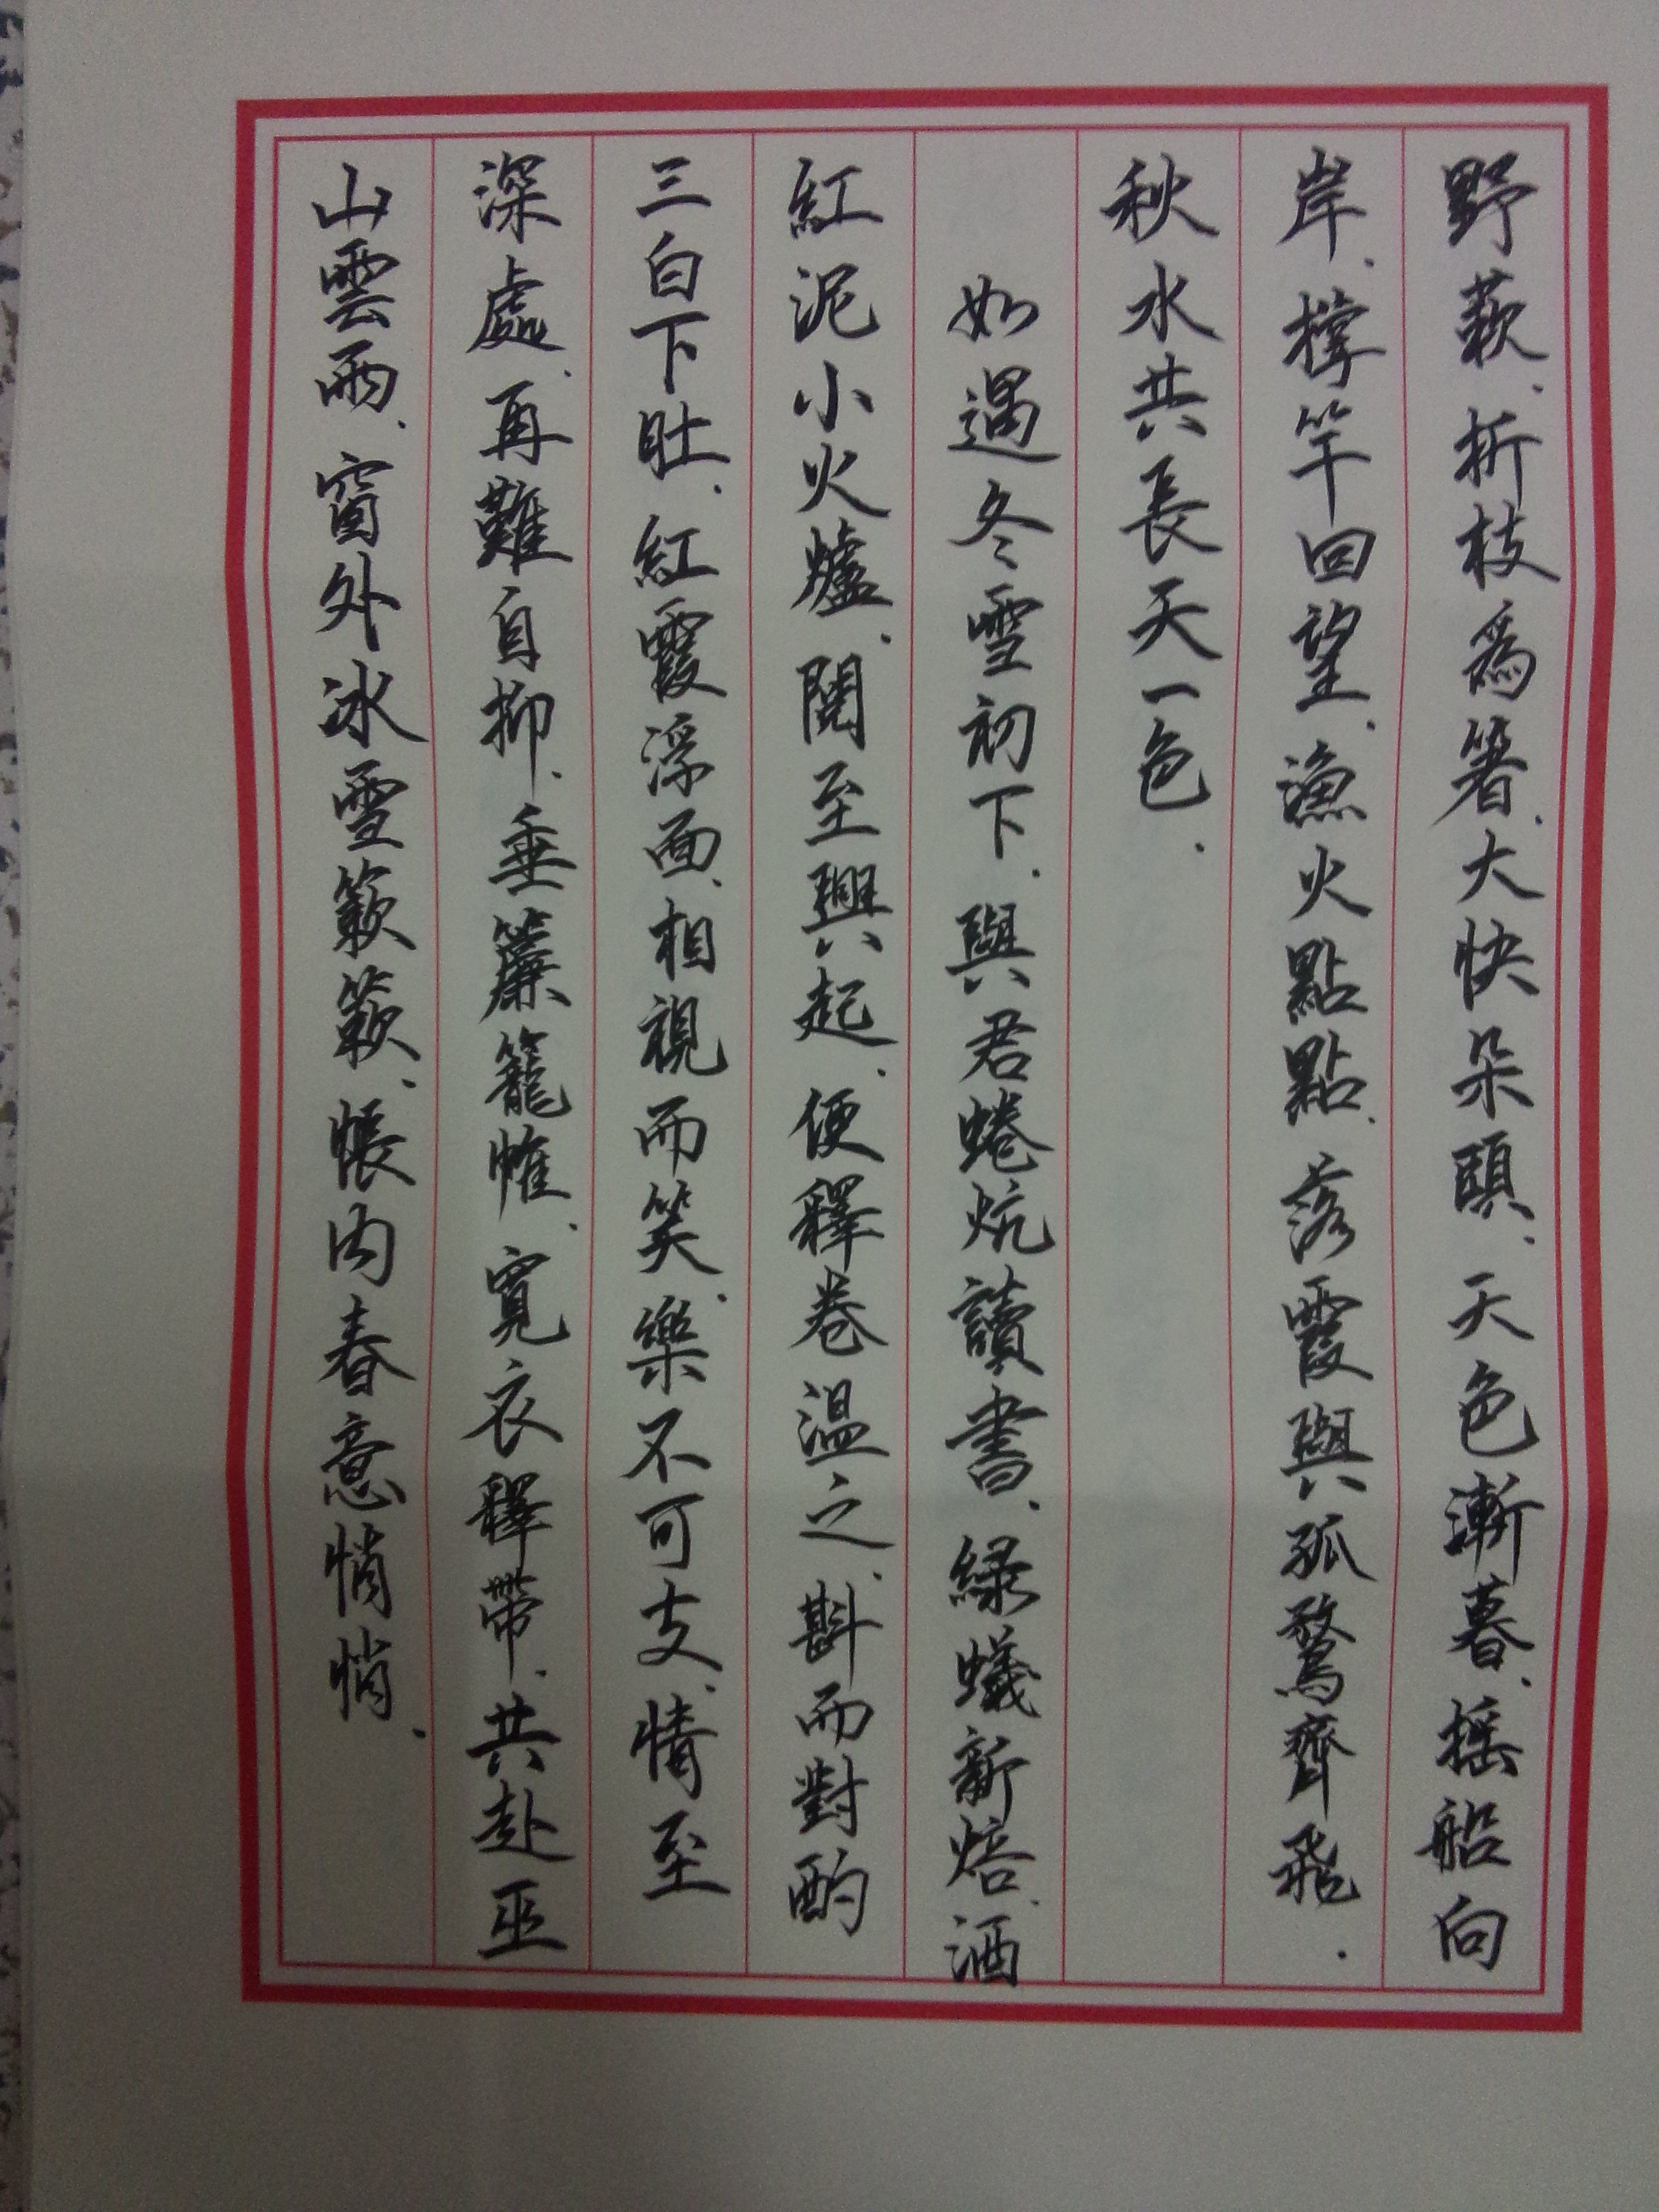 野蔌.折枝為箸.大快朵頤.天色漸暮.搖船向
岸.撐竿回望.漁火點點.落霞與孤鶩齊飛.
秋水共長天一色.
如遇冬雪初下.與君蜷炕讀書.綠蟻新焙.酒
紅泥小火爐.閱至興起.便釋卷溫之.斟而對酌
三白下肚.紅霞浮面.相視而笑.樂不可支.情至
深處.再難自抑.垂簾籠帷.寬衣釋帶.共赴巫
山雲雨.窗外冰雪簌簌.帳內春意悄悄.